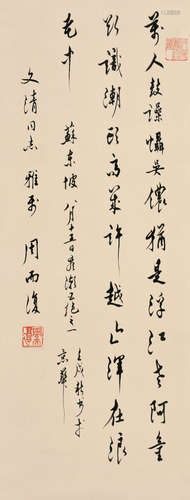 萬人鼓譟懾吳儂猶是浮江老阿童
欲識潮頭高幾許越山渾在浪
花中 蘇東坡八月十五日看潮五絕之一
壬戌秋书于
京華
文清同志雅正 周而復